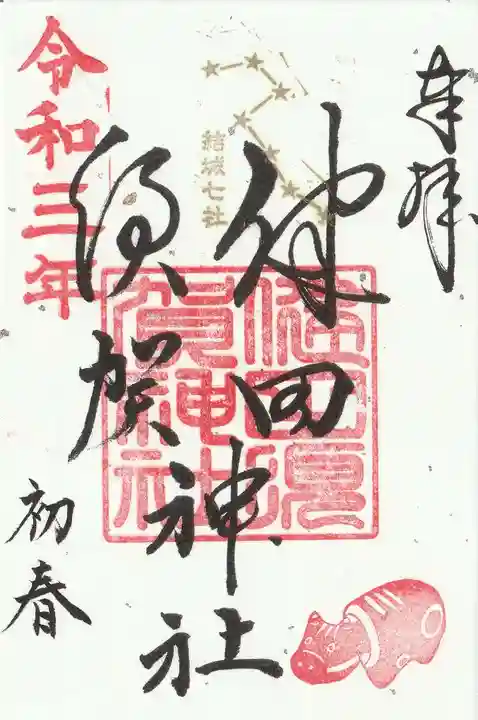 奉拝
結城七社
健田
須賀
神社
令和三年
初春